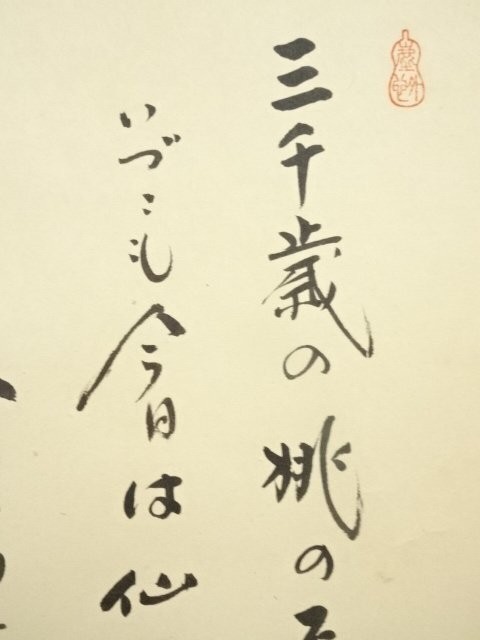 三千歳の桃の
いづこも今日は仙